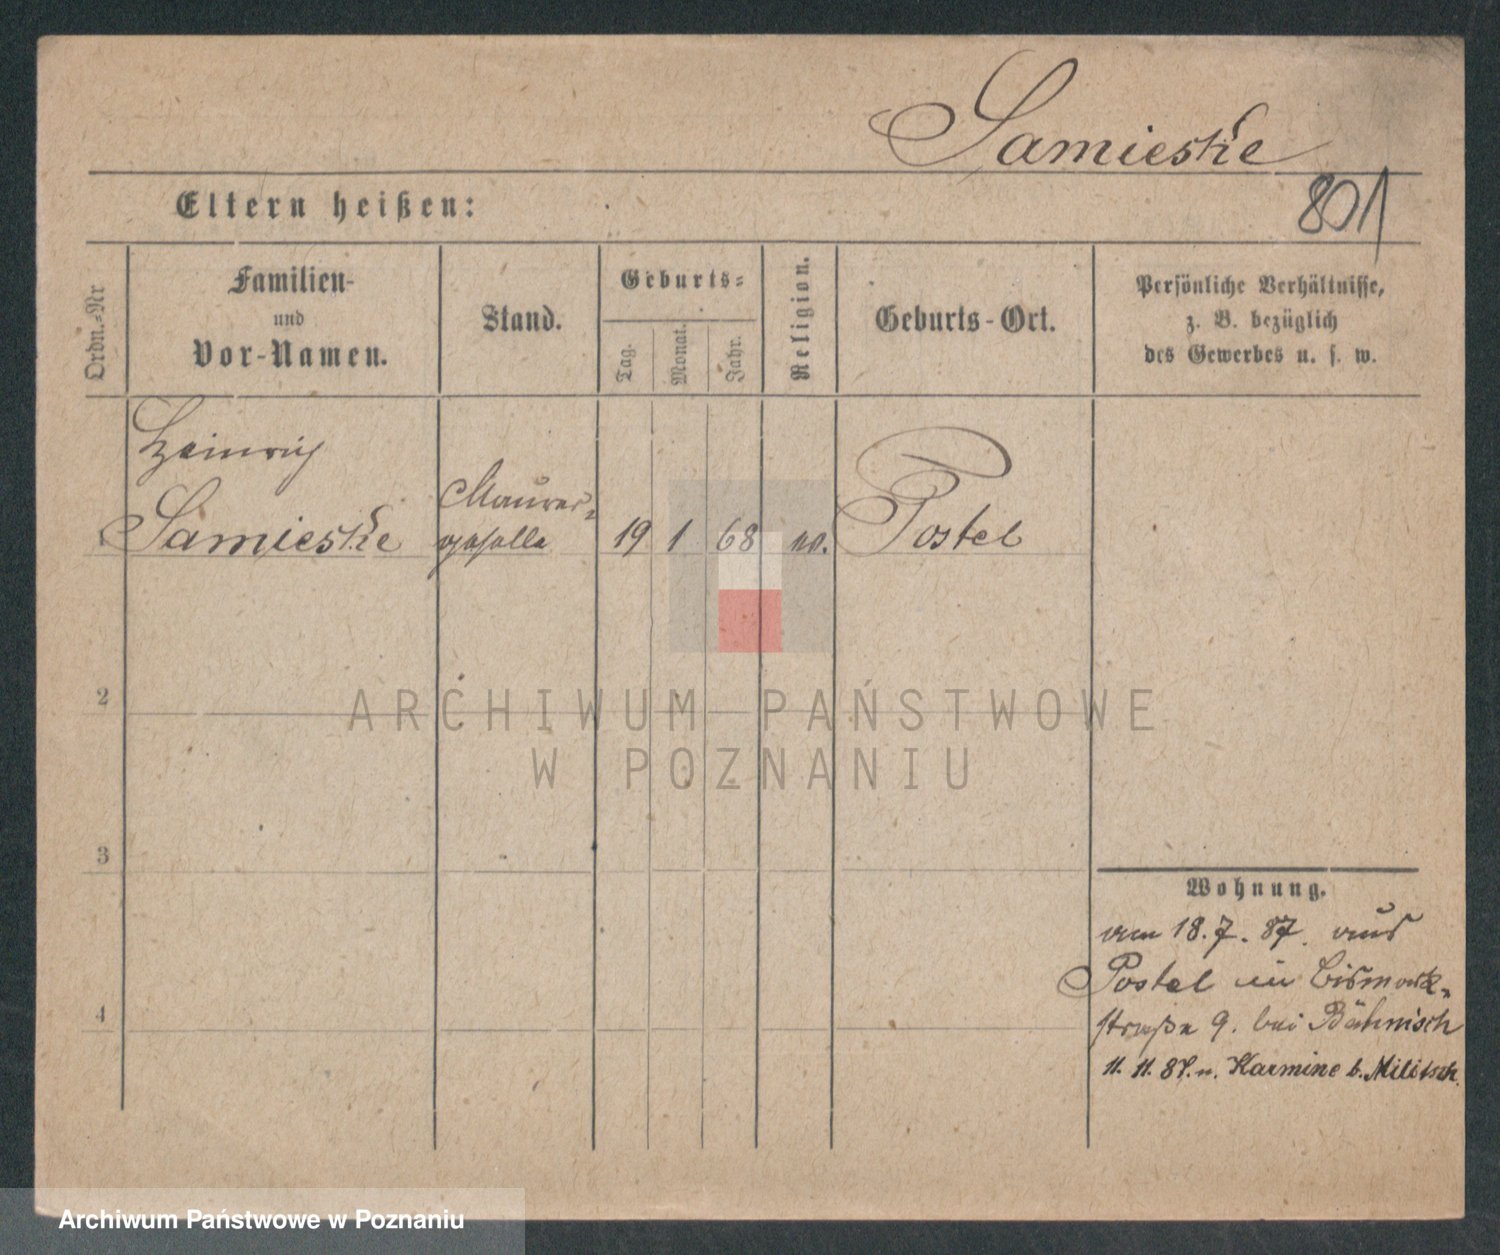 Samieske
801
Eltern heißen:
Ordn.-Nr
Familien-
und
Vor-Namen.
Stand.
Geburts-
Tag.
Monat.
Jahr.
Religion.
Geburts-Ort.
Persönliche Verhältnisse,
z. B. bezüglich
des Gewerbes u. s. w.
Heinrich
Maurer-
1 Samieske geselle 19 1 68 Postel
2
3
4
Wohnung.
am 18.7.87. aus
Postel in Bismark-
straße 9. bei Bähnisch
11.11.87. n. Karmine b. Militsch.
ARCHIWUM PAŃSTWOWE
W POZNANIU
Archiwum Państwowe w Poznaniu